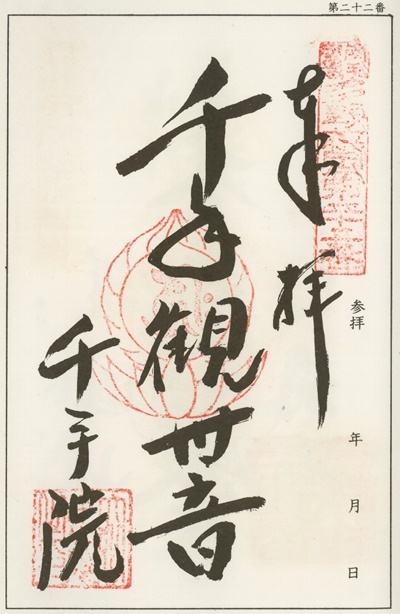 第二十二番
奉拝
参拝 年 月 日
千手観世音
千手院